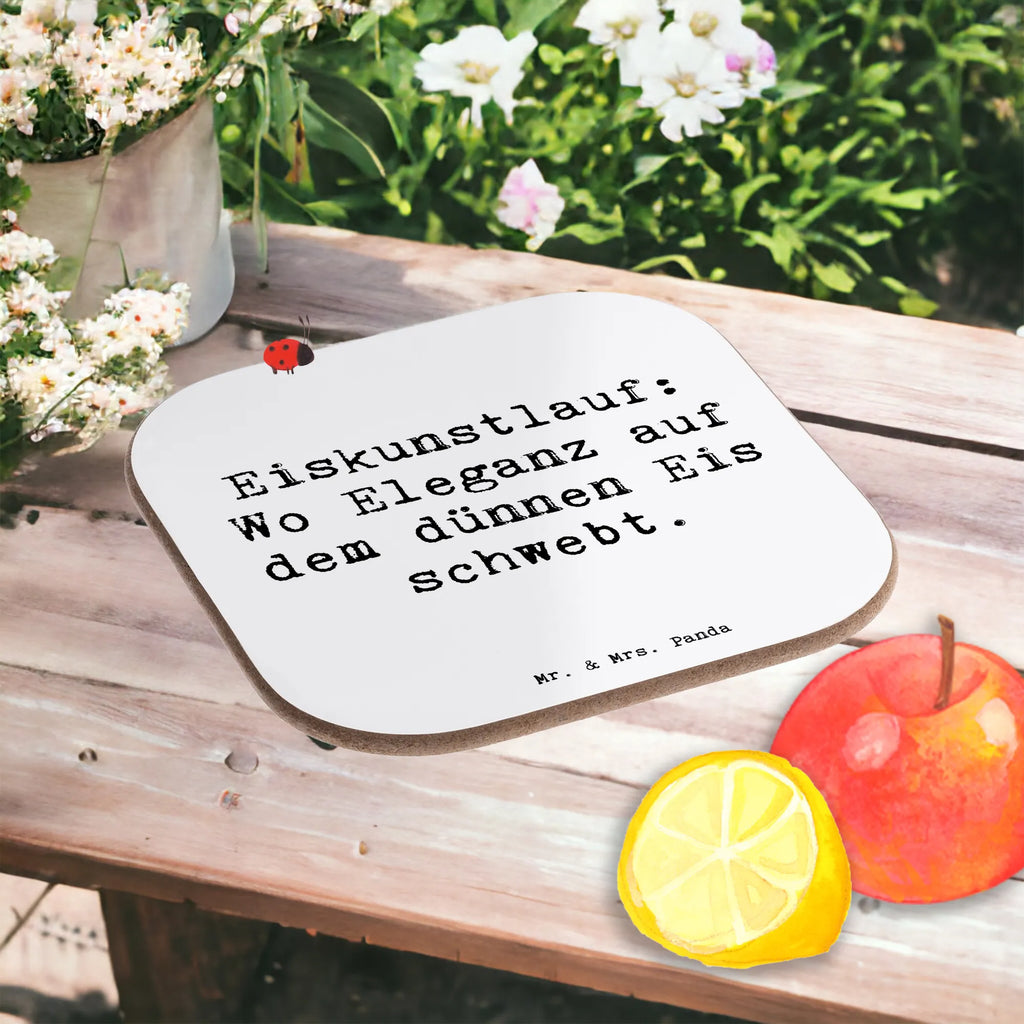 Eiskunstlauf:
Wo Eleganz auf
dem dünnen Eis
schwebt.
Mr. & Mrs. Panda